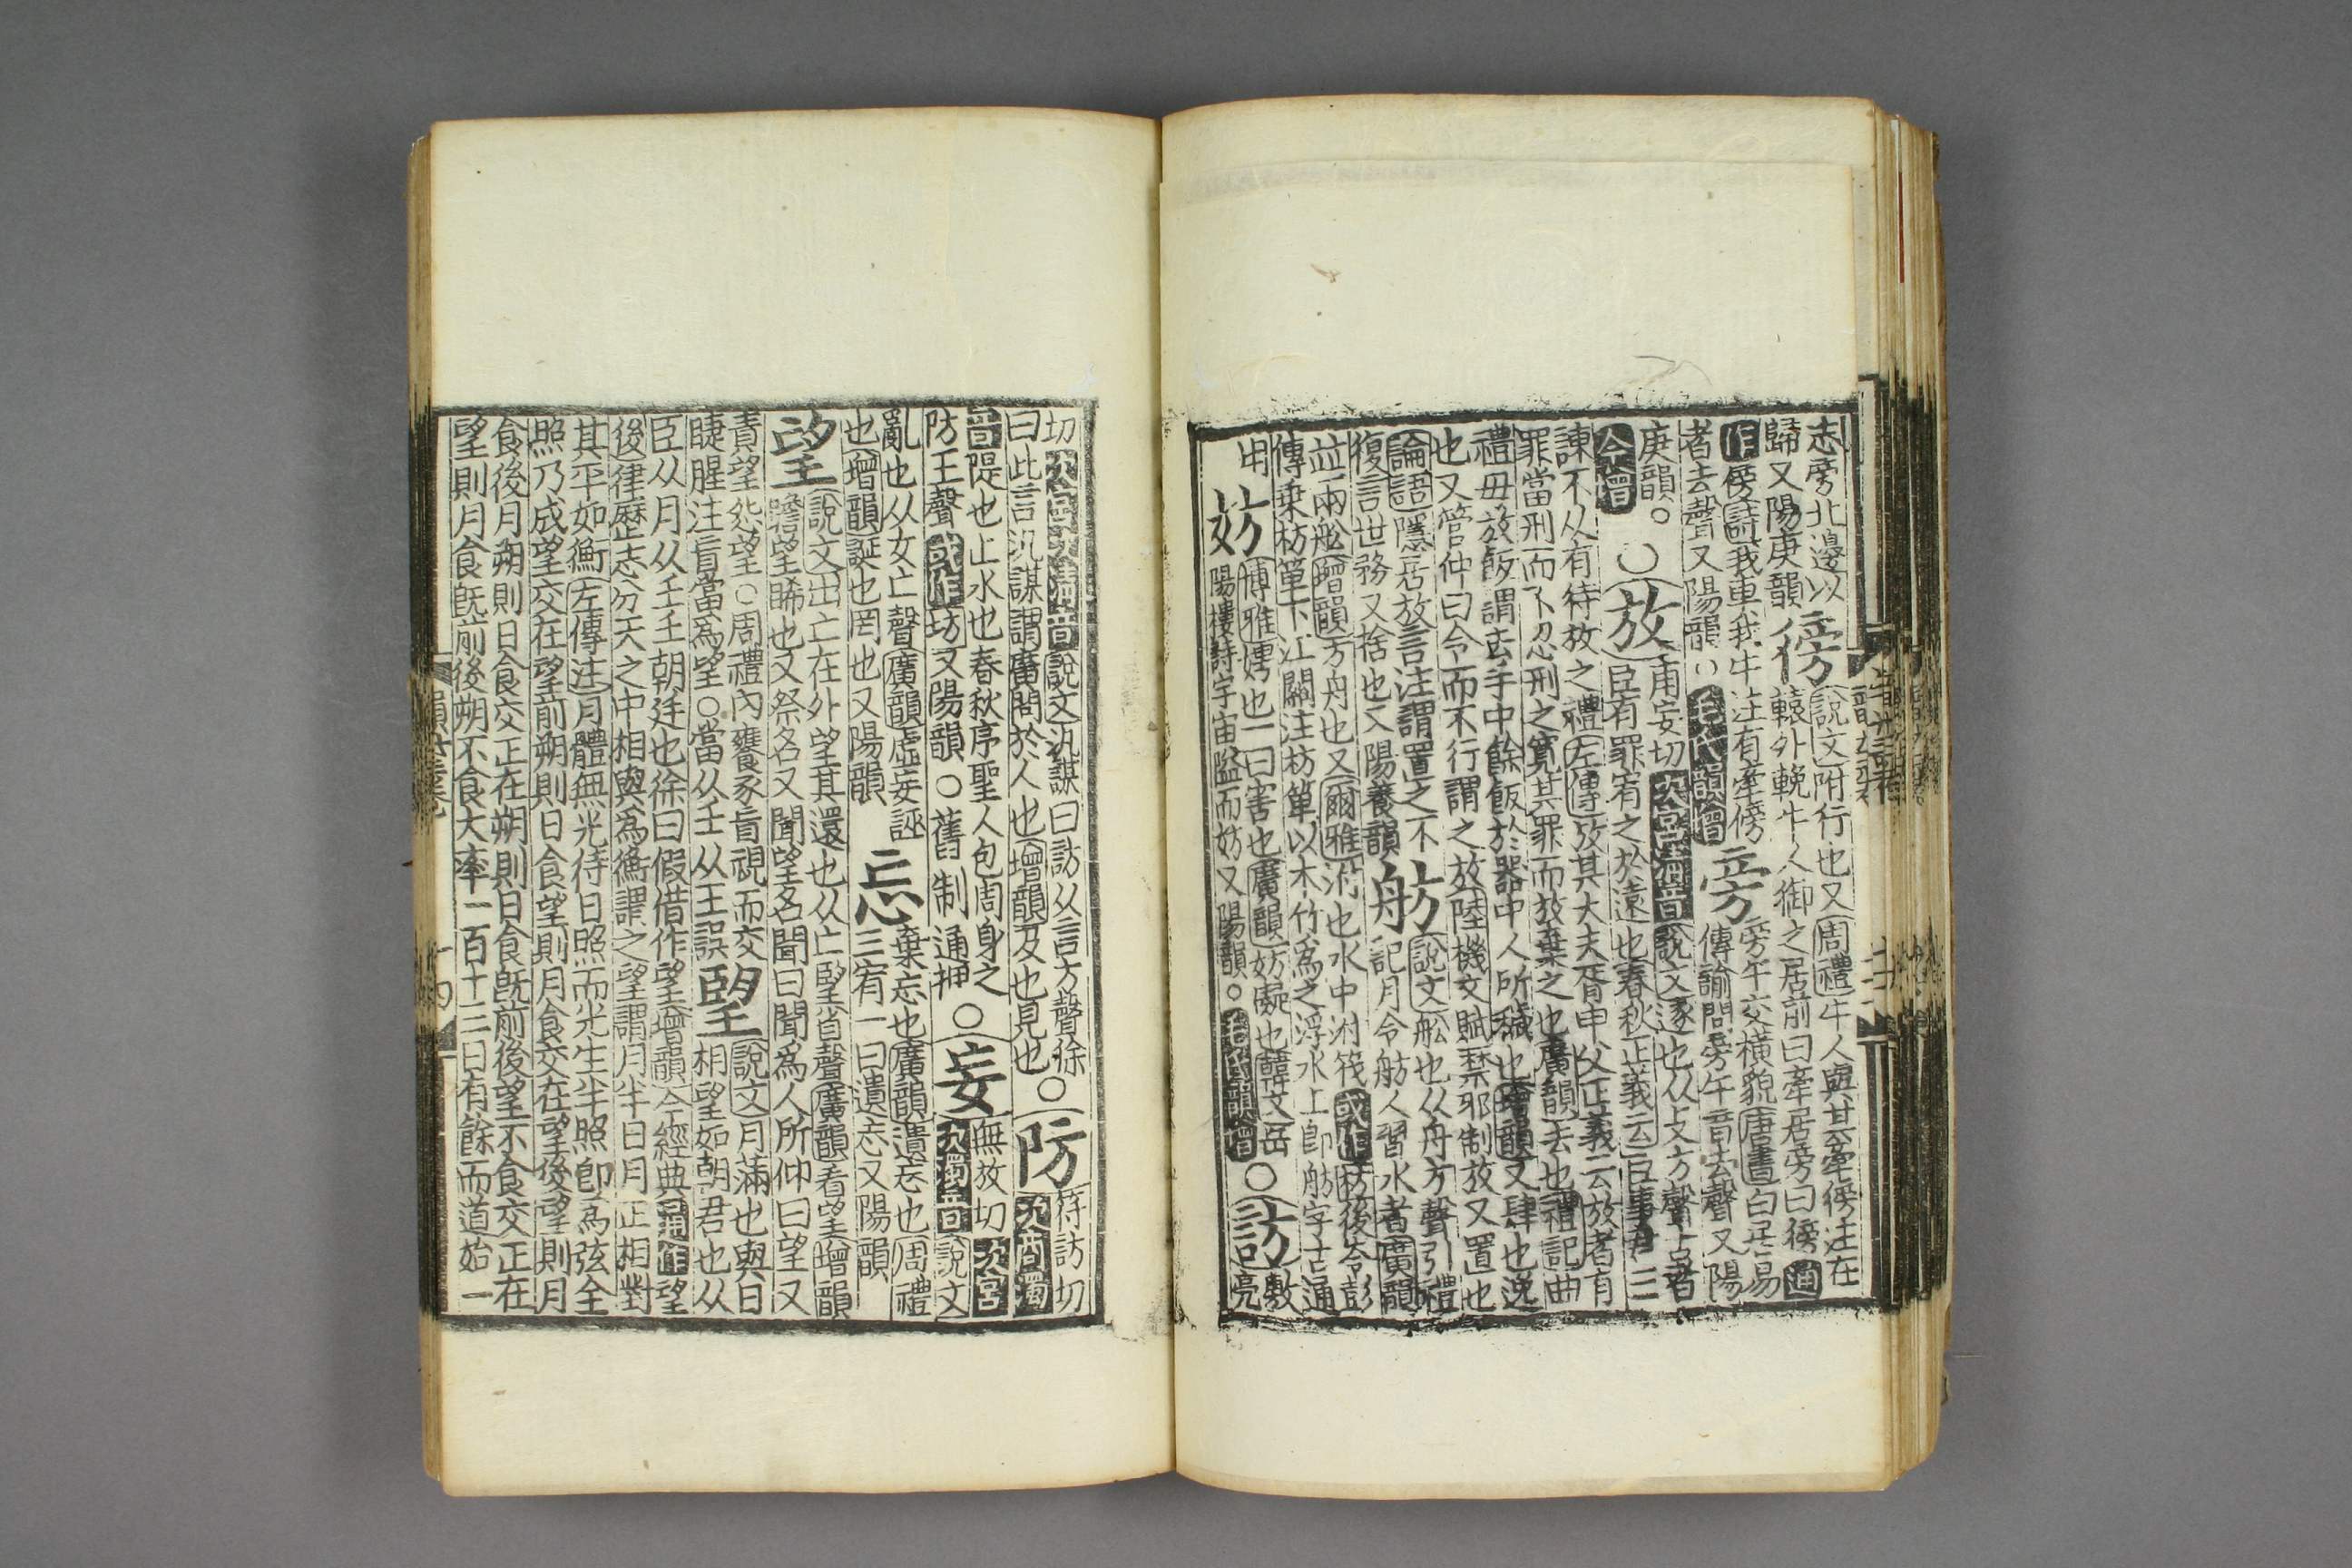 志旁北邊以
歸又陽庚韻
傍
說文附行也又周禮牛人與其牽傍注在
轅外輓牛人御之居前曰牽居旁曰傍通
作傍詩我車我牛注有牽傍
者去聲又陽韻○毛氏韻增
旁
旁午交橫貌唐書白居易
傳諭問旁午音去聲又陽
庚韻。
今增
○放
甫妄切次宮清音說文逐也从攴方聲古者
臣有罪宥之於遠也春秋正義云臣事君三
諫不从有待放之禮左傳放其大夫胥甲父正義云放者有
罪當刑而不忍刑之寬其罪而放棄之也廣韻去也禮記曲
禮毋放飯謂去手中餘飯於器中人所穢也增韻又肆也逸
也又管仲曰令而不行謂之放陸機文賦禁邪制放又置也
論語隱居放言注謂置之不
復言世務又捨也又陽養韻
舫
說文舩也从舟方聲引禮
記月令舫人習水者廣韻
並兩舩增韻方舟也又爾雅泭也水中泭筏或作枋後岑彭
傳乗枋箄下江關注枋箄以木竹為之浮水上即舫字古通
用
妨
博雅娉也一曰害也廣韻妨礙也韓文岳
陽樓詩宇宙隘而妨又陽韻。毛氏韻增
○訪
敷
亮
切次宮次清音說文汎謀曰訪从言方聲徐
曰此言汎謀謂廣問於人也增韻及也見也
○防
符訪切
次商濁
音隄也止水也春秋序聖人包周身之
防王聲或作坊又陽韻○舊制通押
○妄
無放切次宮
次濁音說文
亂也从女亡聲廣韻虛妄誣
也增韻誕也罔也又陽韻
忘
棄忘也廣韻遺忘也周禮
三宥一曰遺忘又陽韻
望
說文出亡在外望其還也从亡朢省聲廣韻看望增韻
瞻望睎也又祭名又聞望名聞曰聞為人所仰曰望又
責望怨望○周禮內饔豕盲視而交
睫腥注盲當為望○當从壬从王誤
朢
說文月滿也與日
相望如朝君也从
臣从月从壬壬朝廷也徐曰假借作望增韻今經典通作望
後律厯志分天之中相與為衡謂之望謂月半日月正相對
其平如衡左傳注月體無光待日照而光生半照即為弦全
照乃成望交在望前朔則日食望則月食交在望後望則月
食後月朔則日食交正在朔則日食既前後望不食交正在
望則月食既前後朔不食大率一百十三日有餘而道始一